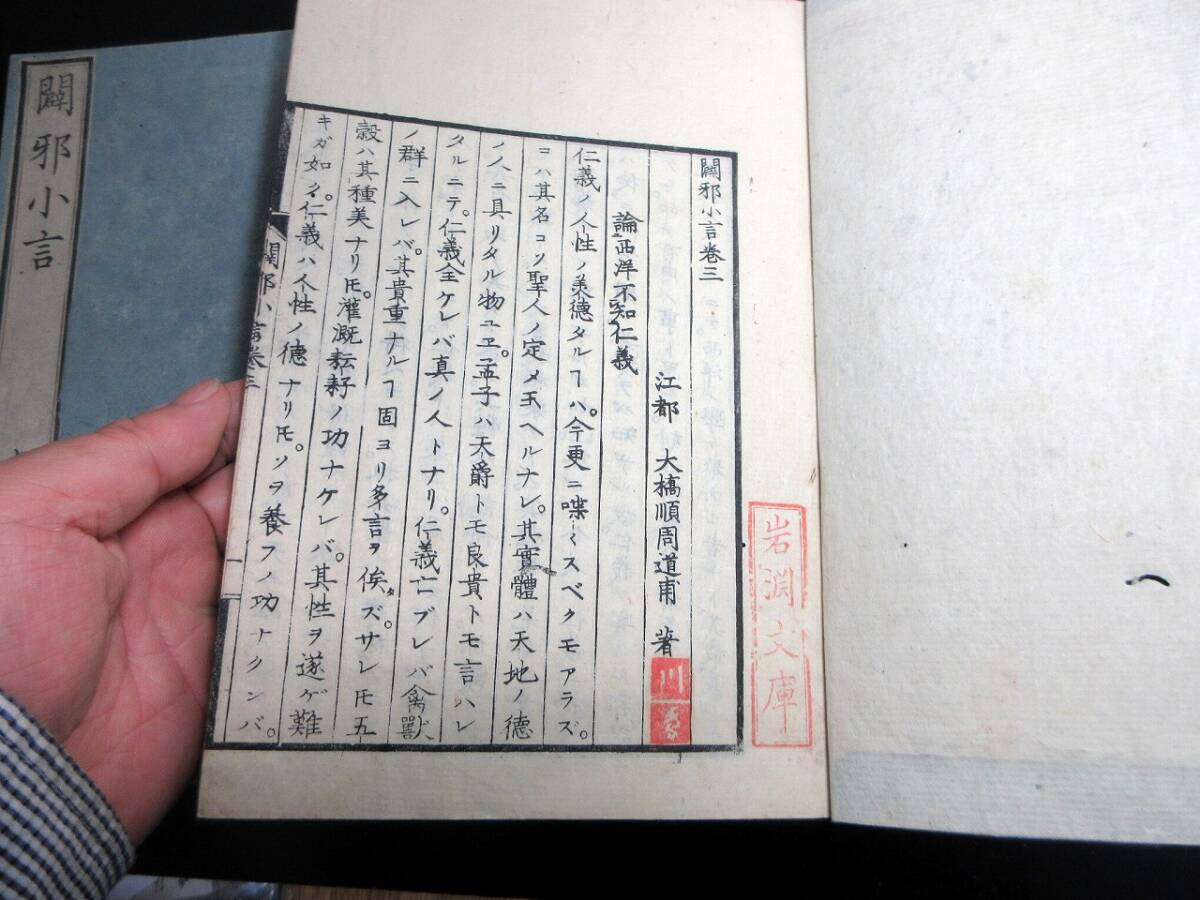 闢邪小言
闢邪小言卷三
江都 大橋順周道甫 著
論西洋不知仁義
仁義ノ人性ノ美德タルヿハ。今更ニ喋〱スベクモアラズ。
コハ其名コソ聖人ノ定メ玉ヘルナレ。其實體ハ天地ノ德
ノ人ニ具リタル物ユヱ。孟子ハ天爵トモ良貴トモ言ハレ
タルニテ。仁義全ケレバ真ノ人トナリ。仁義亡ブレバ禽獸
ノ群ニ入レバ。其貴重ナルヿ固ヨリ多言ヲ俟ズ。サレㆉ五
穀ハ其種美ナリㆉ。灌漑耘耔ノ功ナケレバ。其性ヲ遂ゲ難
キガ如ク。仁義ハ人性ノ德ナリㆉ。ソヲ養フノ功ナクンバ。
闢邪小言卷三
一
岩淵文庫
川